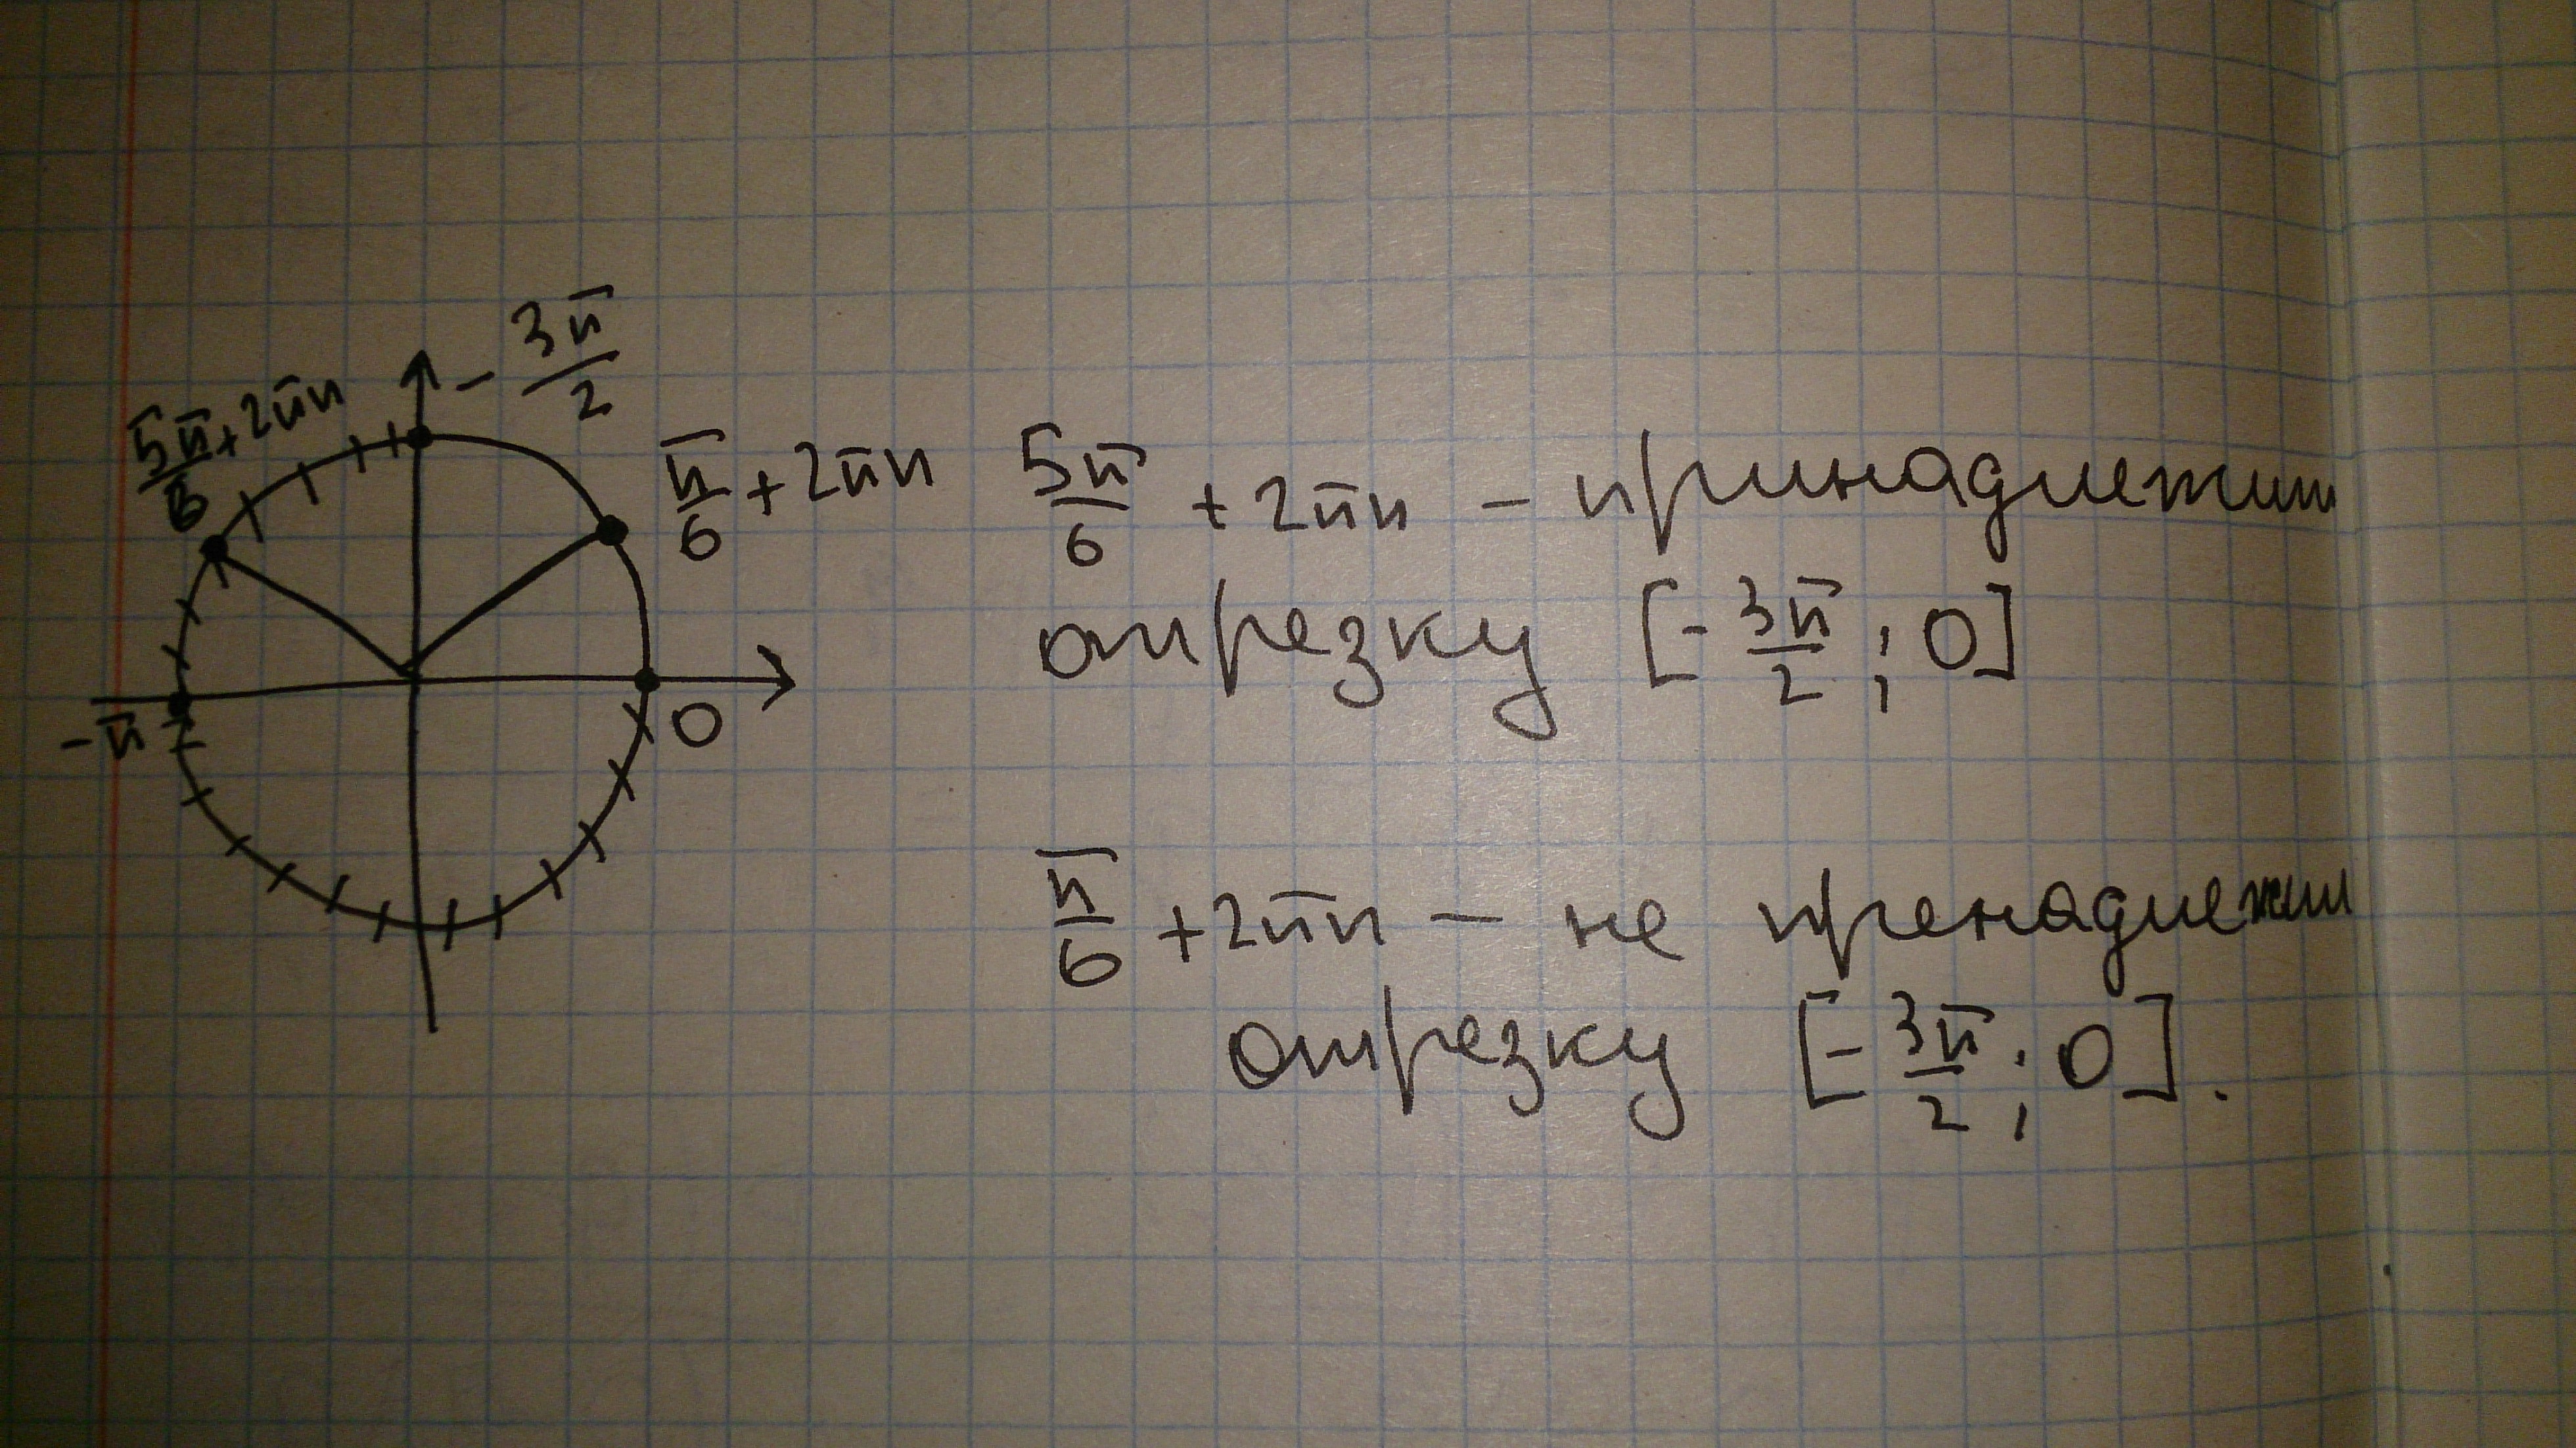 -3π/2
5π/6+2πn
π/6+2πn
-π
0
5π/6 + 2πn - принадлежит
отрезку [-3π/2; 0]
π/6 + 2πn - не пренадлежит
отрезку [-3π/2; 0].